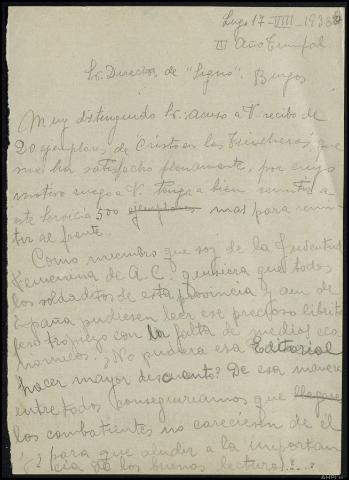 Lugo 17-VIII-1938
III Año Triunfal
Sr. Director de "Signo". Burgos
Muy distinguido Sr.: acuso a V. recibo de
20 ejemplares de Cristo en las trincheras, que
me ha satisfecho plenamente, por cuyo
motivo ruego a V. tenga a bien remitir a
este Servicio 500 ejemplares mas para remi-
tir al frente.
Como miembro que soy de la Juventud
Femenina de A.C. quisiera que todos
los soldaditos de esta provincia y aun de
España pudiesen leer ese precioso librito
pero tropiezo con la falta de medios eco
nomicos. ¿No pudiera esa Editorial
hacer mayor descuento? De esa manera
entre todos conseguiriamos que llegase
los combatientes no careciesen de él
¿y para que aludir a la importan
cia de las buenas lecturas?...